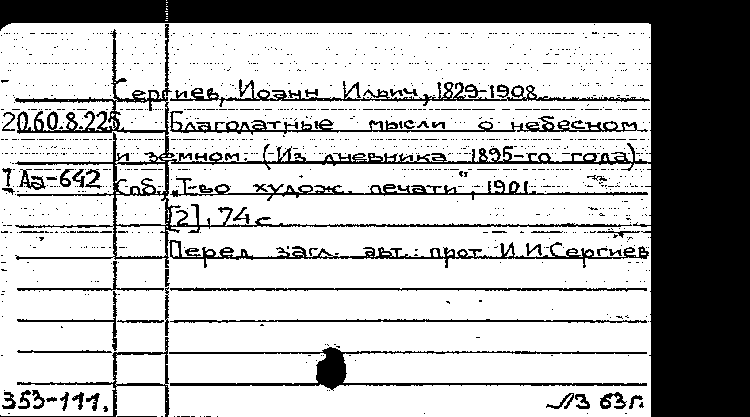 Сергиев, Иоанн Ильич, 1829-1908.
20.60.8.225 Благодатные мысли о небесном
и земном. (Из дневника 1895-го года).
I Аа-642 Спб., „Т-во худож. печати", 1901.
[2], 74 с.
Перед загл. авт.: прот. И.И.Сергиев
353-111. 63 г.